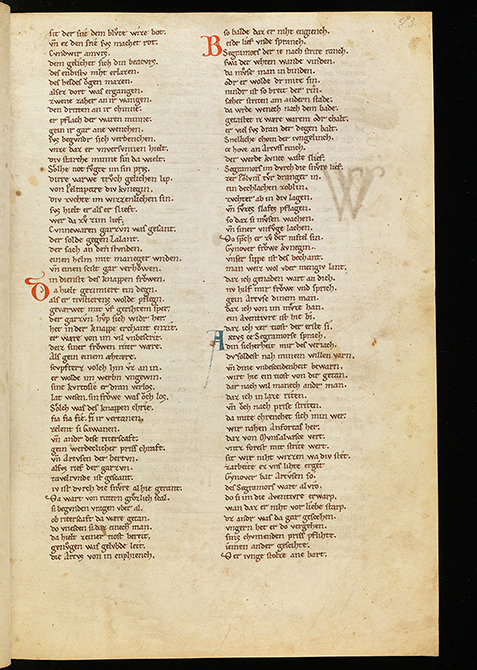 sit der sne dem blv̊te wize bot.
vn̄ er den sne sus machet rot.
Cvndwir amvrs.
dem gelichet sich din beacvrs.
des endistv niht erlazen.
des heldes ogen mazen.
alsez dort was ergangen.
zwene zaher an ir wangen.
den dritten an ir chinne.
er pflach der waren minne.
gein ir gar ane wenchen.
svs begvnder sich verdenchen.
vnze daz er vnversvnnen hielt.
div starche minne sin da wielt.
Solhe not fvgte im sin
dirre varwe trvch gelichen lip.
von Pelrapeire div kvnegin.
div zvchte im wizzenlichen sin.
svs hielt er als er slieff.
wer da zv̊ zim lief.
Cvnnewaren garzvn was gesant.
der solde gegen Lalant.
der sach an den stvnden.
einen helm mit maneger wnden.
vn̄ einen schilt gar verhowen.
in dienste des knappen frowen.
Da hielt gezimiert ein degen.
als er tiustierens wolde pflegn.
gevarwet mit vf gerihtem sper.
der garzvn hvp sich wider her.
het in der knappe erchant enzit.
er ware von im vil vnbeschrit.
derz siner frowen ritter ware.
Als gein einem æhtære.
scvpfterz volch hin vz an in.
er wolde im werbn vngewin.
sine kvrtosie er dran verlos.
lat wesen. sin frowe was och los.
Solch was des knappen chrie.
fia fia fie. fi ir vertanen.
zelent si Gawanen.
vn̄ andr dise ritterschaft.
gein werdeclicher priss chraft.
vn̄ Artvsen der Bertvn.
alsvs rief der garzvn.
tavelrvnde ist geschant.
iv ist dvrch die snvre alhie gerant.
Da wart von rittern grozlich schal.
si begvnden vragen vber al.
ob ritterschaft da ware getan.
do vriesen si daz einech man.
da hielt zeiner tiost bereit.
genvgen was gelvbde leit.
die Artvs von in enphiench.
so balde daz er niht engiench.
Beide lief vnde spranch.
Segramors der ie nach strite ranch.
swa der vehten wande vinden.
da mv̊se man in binden.
odr er wolde dr mite sin.
nindr ist so breit der Rin.
saher striten am andern stade.
da wrde wenech nach dem bade.
getastet ez ware warm odr chalt.
er viel svs dran der degen balt.
Snellichе chom der ivngelinch.
ce hove an Artvss rinch.
der werde kvnec vaste slief.
Segramors im dvrch die snvre lief.
zer povlvns tvr dranger in.
ein dechlachen zoblin.
zvchter ab in div lagen.
vn̄ svzes slafes pflagen.
so daz si mvsen wachen.
vn̄ siner vnfvge lachen.
Do sprach er zv̊ der niftel sin.
Gynover frowe kvnegin.
vnser sippe ist des bechant.
man weiz wol vber mengiv lant.
daz ich genaden wart an dich.
nv hilf mir frowe vnd sprich.
gein Artvse dinem man.
daz ich von im mvze han.
ein aventivre ist hie bi.
daz ich zer tiost der erste si.
Artvs ce Segramorse sprach.
din sicherheit mir des veriach.
dv soldest nah minem willen varn.
vn̄ dine vnbescheidenheit bewarn.
wirt hie ein tiost von dir getan.
dar nach wil manech andr man.
daz ich in laze riten.
vn̄ och nach prise striten.
da mite chrenchet sich min wer.
wir nahen Anfortas her.
daz von Mvnsalvasce vert.
vntz forest mit strite wert.
sit wir niht wizzen wa div stet.
zarbeite ez vns lihte erget
Gynover bat Artvsen so.
des Segramors wart al vro.
do si im die aventivre erwarp.
wan daz er niht vor liebe starp.
dz andr was da gar geschehen.
vngern het er do veriehen.
sins chvmenden priss pflihte.
iemen ander geschihte.
Der ivnge stolze ane bart.
W